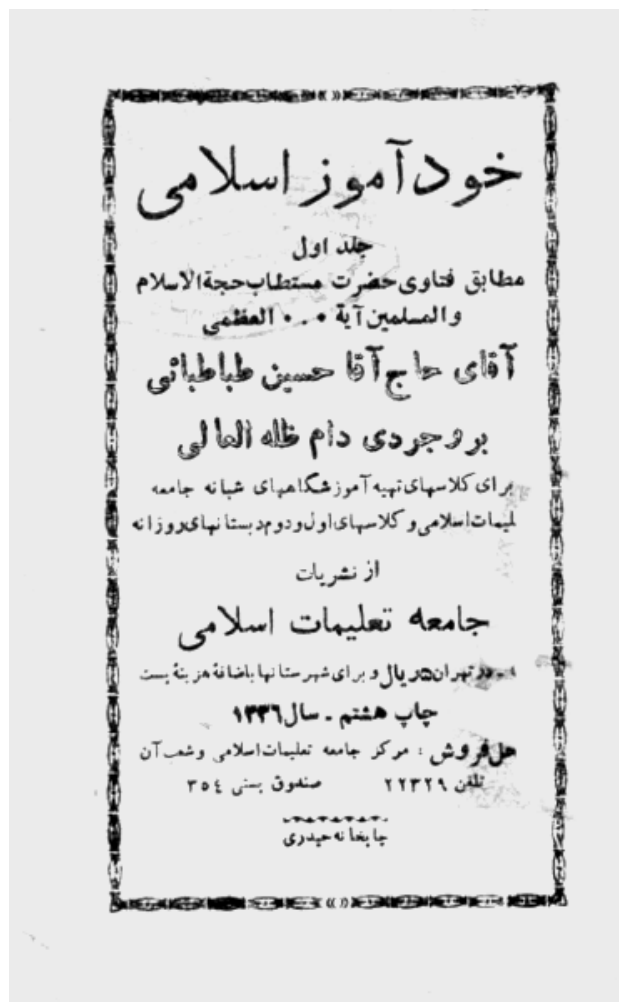 خودآموز اسلامی
جلد اول
مطابق فتاوی حضرت مستطاب حجةالاسلام
والمسلمین آیة ۰۰۰ العظمی
آقای حاج آقا حسین طباطبائی
بروجردی دام ظله العالی
برای کلاسهای تهیه آموزشگاههای شبانه جامعه
لیمات اسلامی و کلاسهای اول و دوم دبستانهای روزانه
از نشریات
جامعه تعلیمات اسلامی
در تهران ۵ ریال و برای شهرستانها باضافهٔ هزینهٔ پست
چاپ هشتم - سال ۱۳۳۶
محل فروش : مرکز جامعه تعلیمات اسلامی وشعب آن
تلفن ۲۲۳۲۹ صندوق پستی ۳۵۴
چاپخانه حیدری